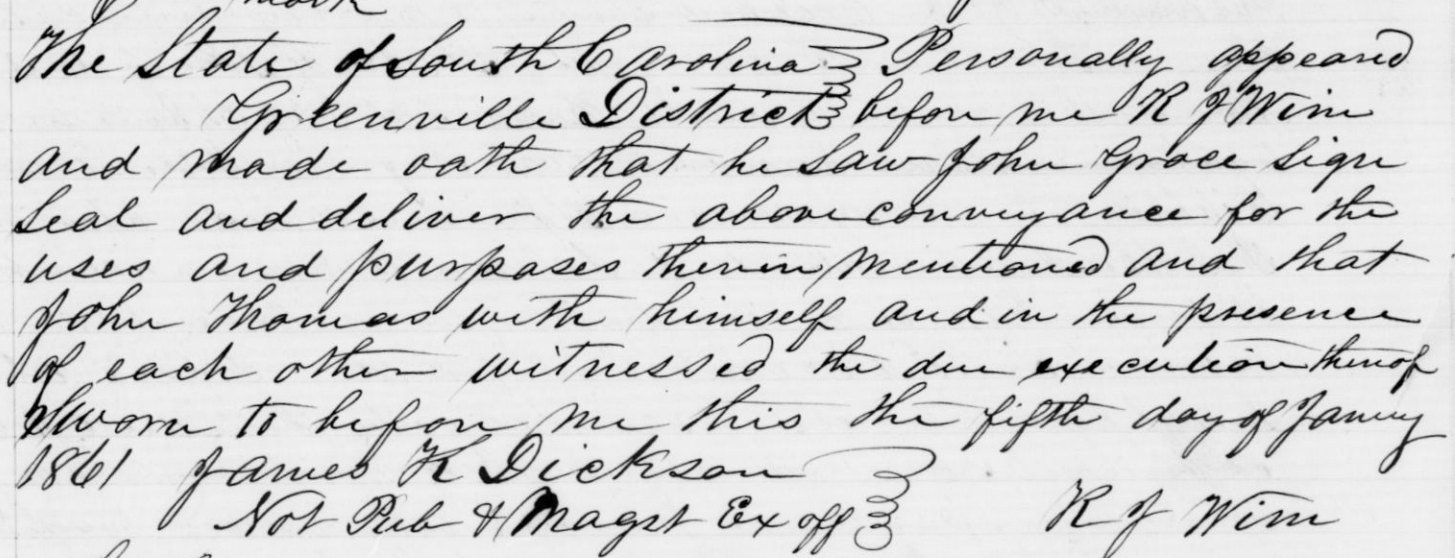 mark
The State of South Carolina } Personally appeared
Greenville District } before me R J Wim
and made oath that he saw John Grace sign
seal and deliver the above conveyance for the
uses and purposes therein mentioned and that
John Thomas with himself and in the presence
of each other witnessed the due execution thereof
Sworn to before me this the fifth day of Janury
1861 James K Dickson }
Not Pub & Magst Ex off } R J Wim